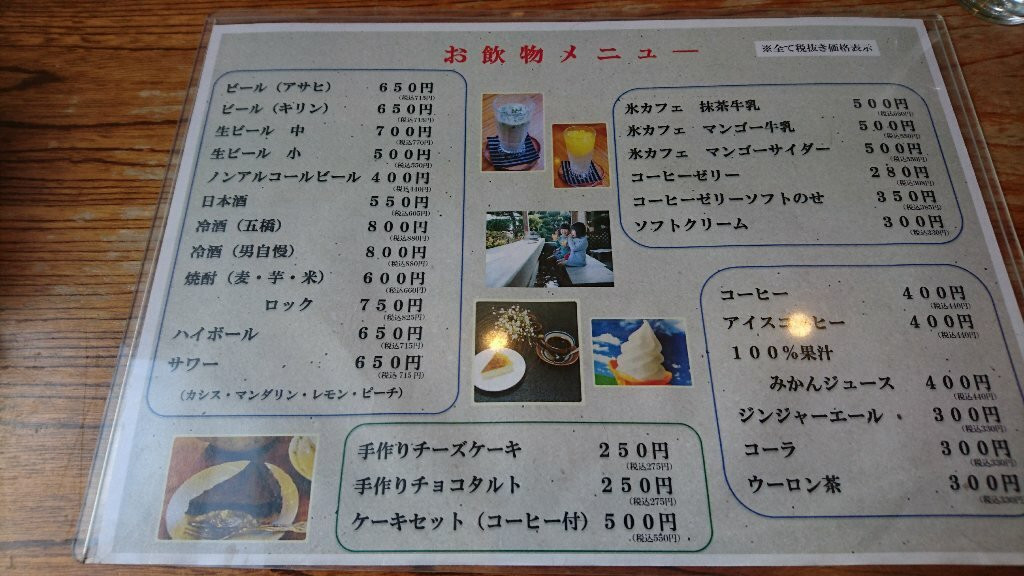 お飲物メニュー
※全て税抜き価格表示
ビール（アサヒ） 650円
(税込715円)
ビール（キリン） 650円
(税込715円)
生ビール 中 700円
(税込770円)
生ビール 小 500円
(税込550円)
ノンアルコールビール 400円
(税込440円)
日本酒 550円
(税込605円)
冷酒（五橋） 800円
(税込880円)
冷酒（男自慢） 800円
(税込880円)
焼酎（麦・芋・米） 600円
(税込660円)
ロック 750円
(税込825円)
ハイボール 650円
(税込715円)
サワー 650円
(税込715円)
（カシス・マンダリン・レモン・ピーチ）
氷カフェ 抹茶牛乳 500円
(税込550円)
氷カフェ マンゴー牛乳 500円
(税込550円)
氷カフェ マンゴーサイダー 500円
(税込550円)
コーヒーゼリー 280円
(税込308円)
コーヒーゼリーソフトのせ 350円
(税込385円)
ソフトクリーム 300円
(税込330円)
コーヒー 400円
(税込440円)
アイスコーヒー 400円
(税込440円)
100%果汁
みかんジュース 400円
(税込440円)
ジンジャーエール・ 300円
(税込330円)
コーラ 300円
(税込330円)
ウーロン茶 300円
(税込330円)
手作りチーズケーキ 250円
(税込275円)
手作りチョコタルト 250円
(税込275円)
ケーキセット（コーヒー付） 500円
(税込550円)